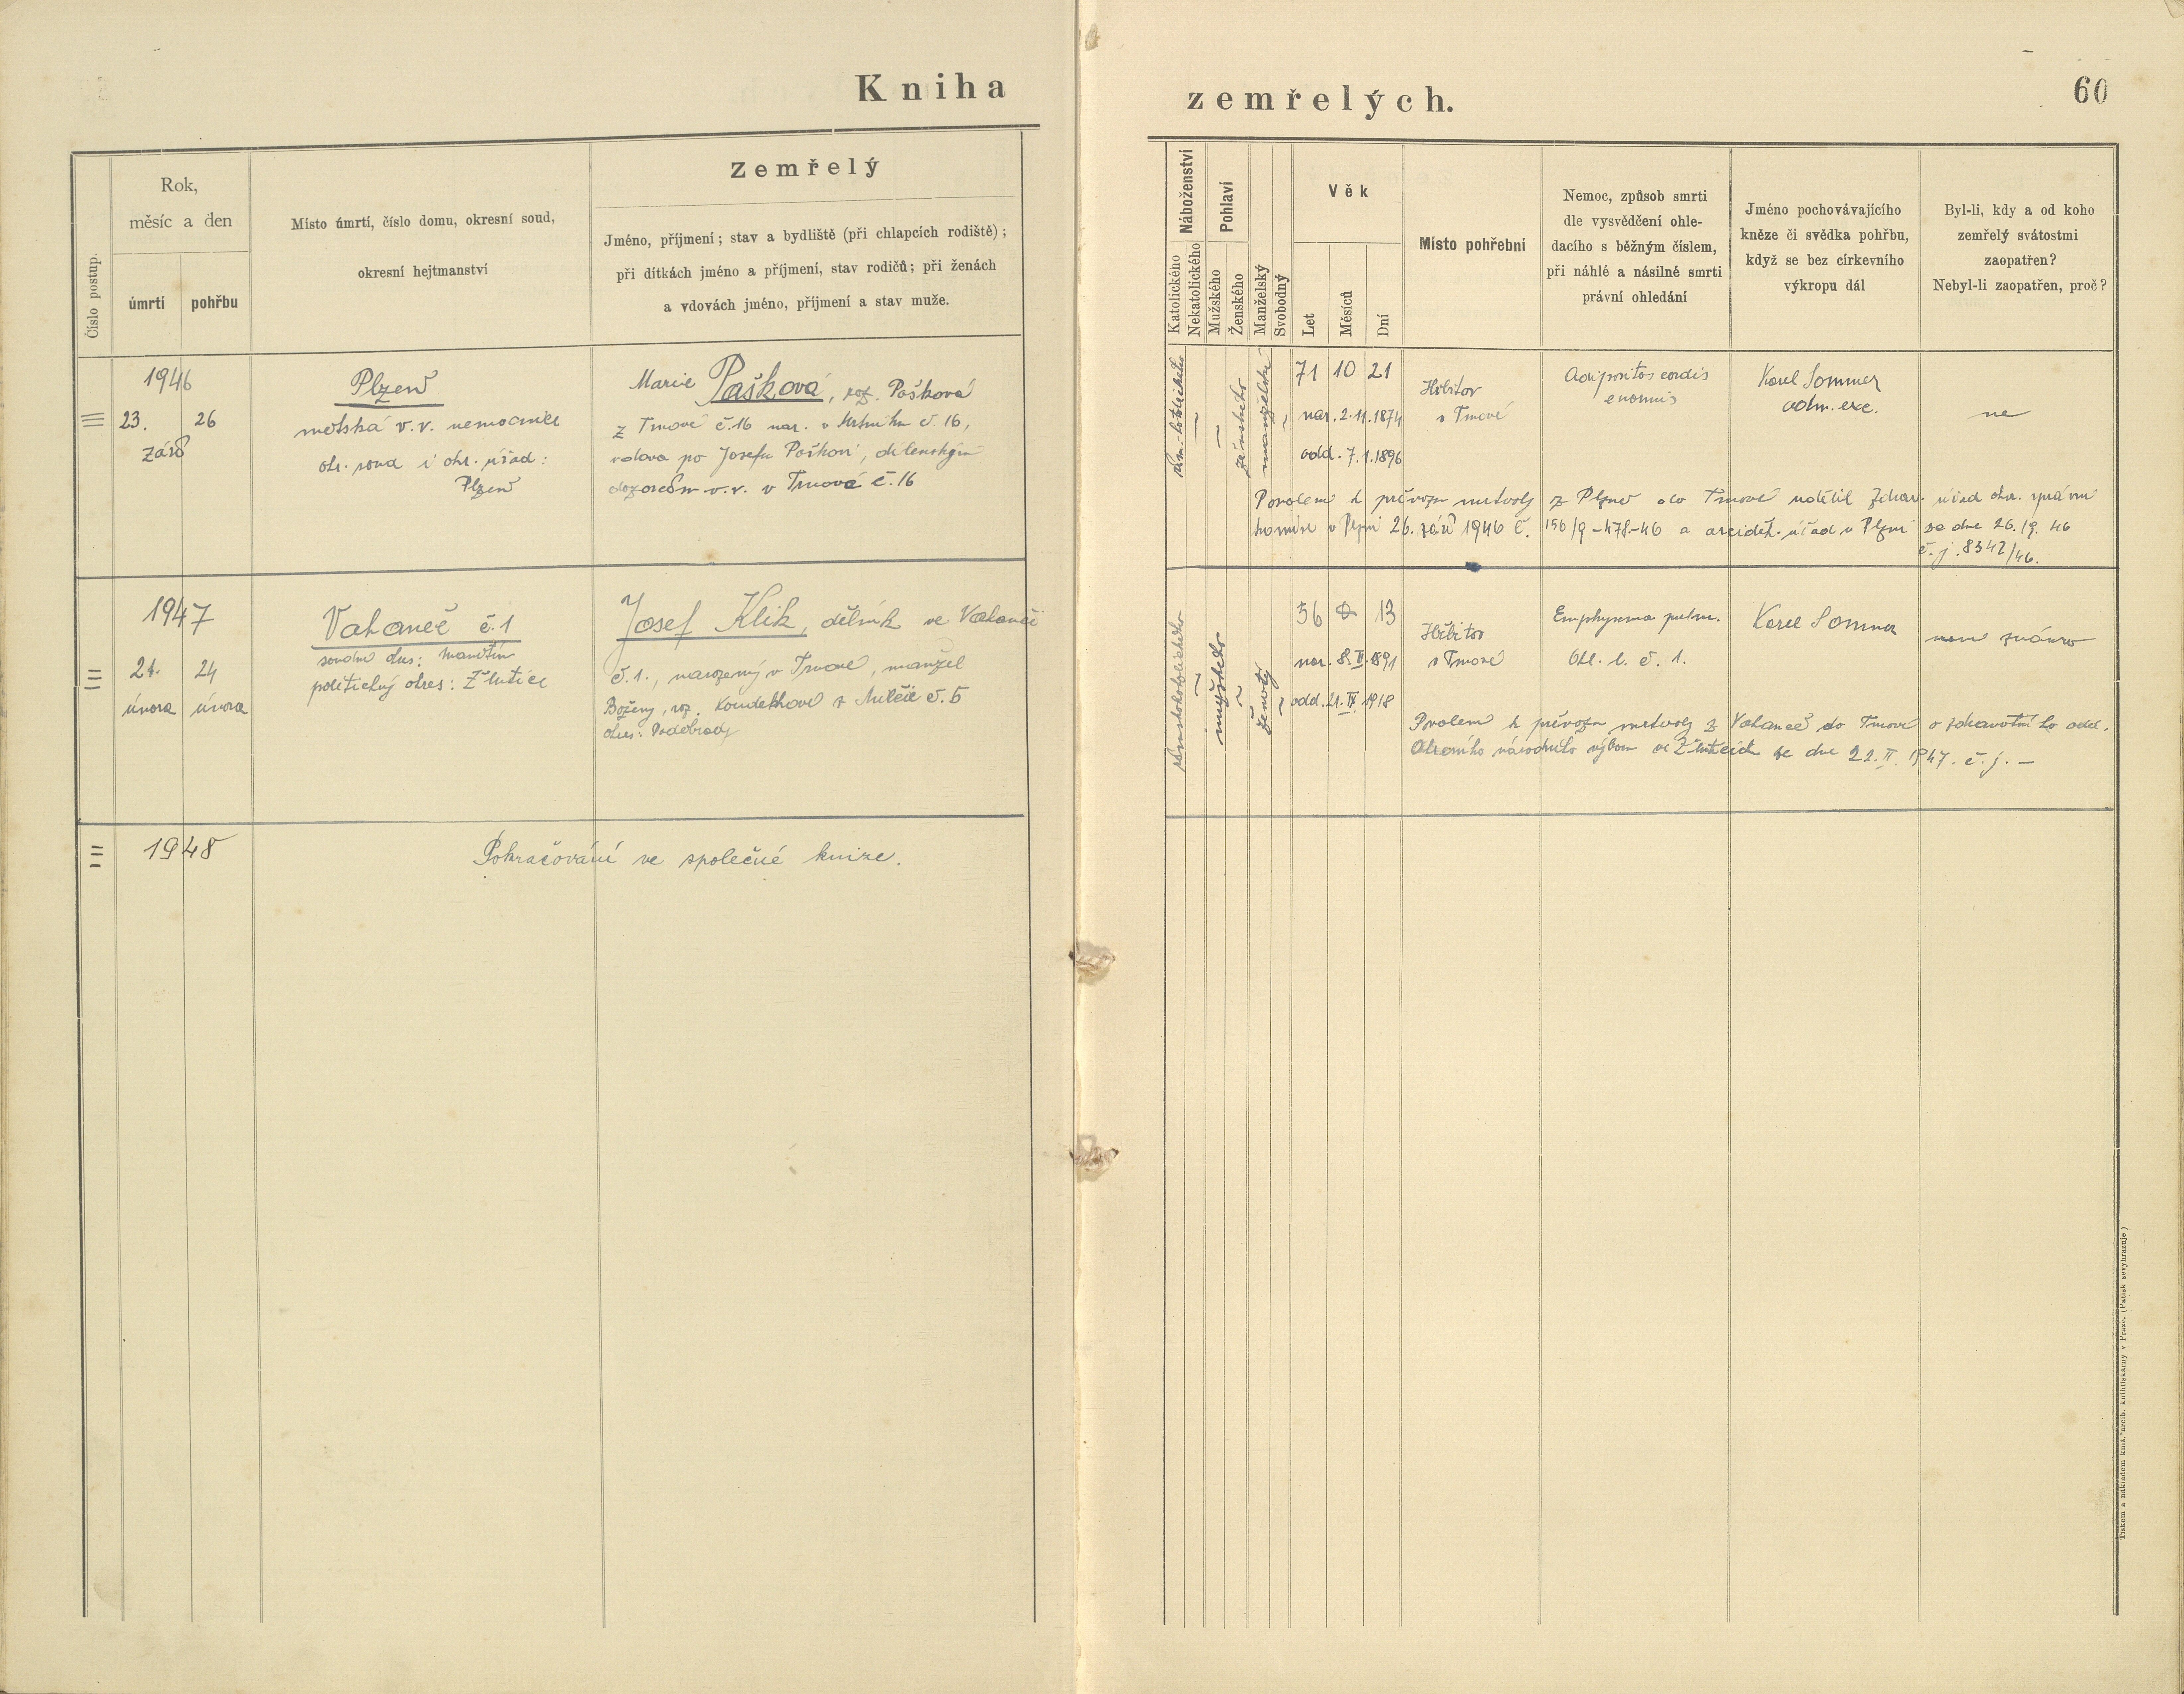 Kniha
zemřelých.
60
Číslo postup.
Rok,
měsíc a den
úmrtí
pohřbu
Místo úmrtí, číslo domu, okresní soud,
okresní hejtmanství
Zemřelý
Jméno, příjmení; stav a bydliště (při chlapcích rodiště);
při dítkách jméno a příjmení, stav rodičů; při ženách
a vdovách jméno, příjmení a stav muže.
Náboženství
Katolického
Nekatolického
Pohlaví
Mužského
Ženského
Manželský
Svobodný
Věk
Let
Měsíců
Dní
Místo pohřební
Nemoc, způsob smrti
dle vysvědčení ohle-
dacího s běžným číslem,
při náhlé a násilné smrti
právní ohledání
Jméno pochovávajícího
kněze či svědka pohřbu,
když se bez církevního
výkropu dál
Byl-li, kdy a od koho
zemřelý svátostmi
zaopatřen?
Nebyl-li zaopatřen, proč?
1946
23.
26
září
Plzeň
městská v.v. nemocnice
okr. soud i okr. úřad:
Plzeň
Marie Pašková, roz. Pašková
z Trnové č.16 nar. v č. 16,
vdova po Josefu Paškovi, dílenským
v.v. v Trnové č.16
řím.-katolického
ženského
manželské
71 10 21
nar. 2.11.1874
odd. 7.1.1896
Hřbitov
v Trnové
Adipositas cordis
enormis
Karel Sommer
adm. exc.
ne
Povolení k převozu mrtvoly z Plzně do Trnové udělil zdrav. úřad okr. správní
komise v Plzni 26. září 1946 č. 156/9-478-46 a arciděk. úřad v Plzni ze dne 26./9. 46
č.j. 8342/46.
1947
21.
24
února
února
Vahaneč č.1
soudní okres: Manětín
politický okres: Žlutice
Josef Klik, dělník ve Vahanči
č.1., narozený v Trnové, manžel
Boženy, roz. Koudelkové z č. 5
okres: Poděbrady
římskokatolického
mužského
ženatý
56 0 13
nar. 8.II.1891
odd. 21.IV.1918
Hřbitov
v Trnové
Emphysema pulm.
Ohl. l. č. 1.
Karel Sommer
není známo
Povolení k převozu mrtvoly z Vahanče do Trnové o zdravotní ho odd.
Okresního národního výboru ve Žluticích ze dne 22.II.1947. č.j. —
1948
Pokračování ve společné knize.
Tiskem a nákladem kníž. arcib. knihtiskárny v Praze. (Patisk se vyhrazuje)